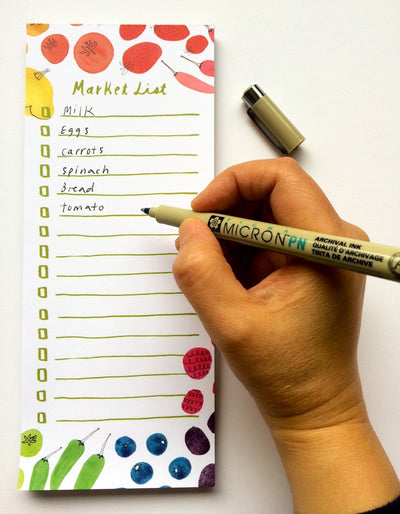 Market List
Milk
Eggs
carrots
spinach
Bread
tomato
MICRON PN
ARCHIVAL INK
QUALITÉ D'ARCHIVAGE
TINTA DE ARCHIVE